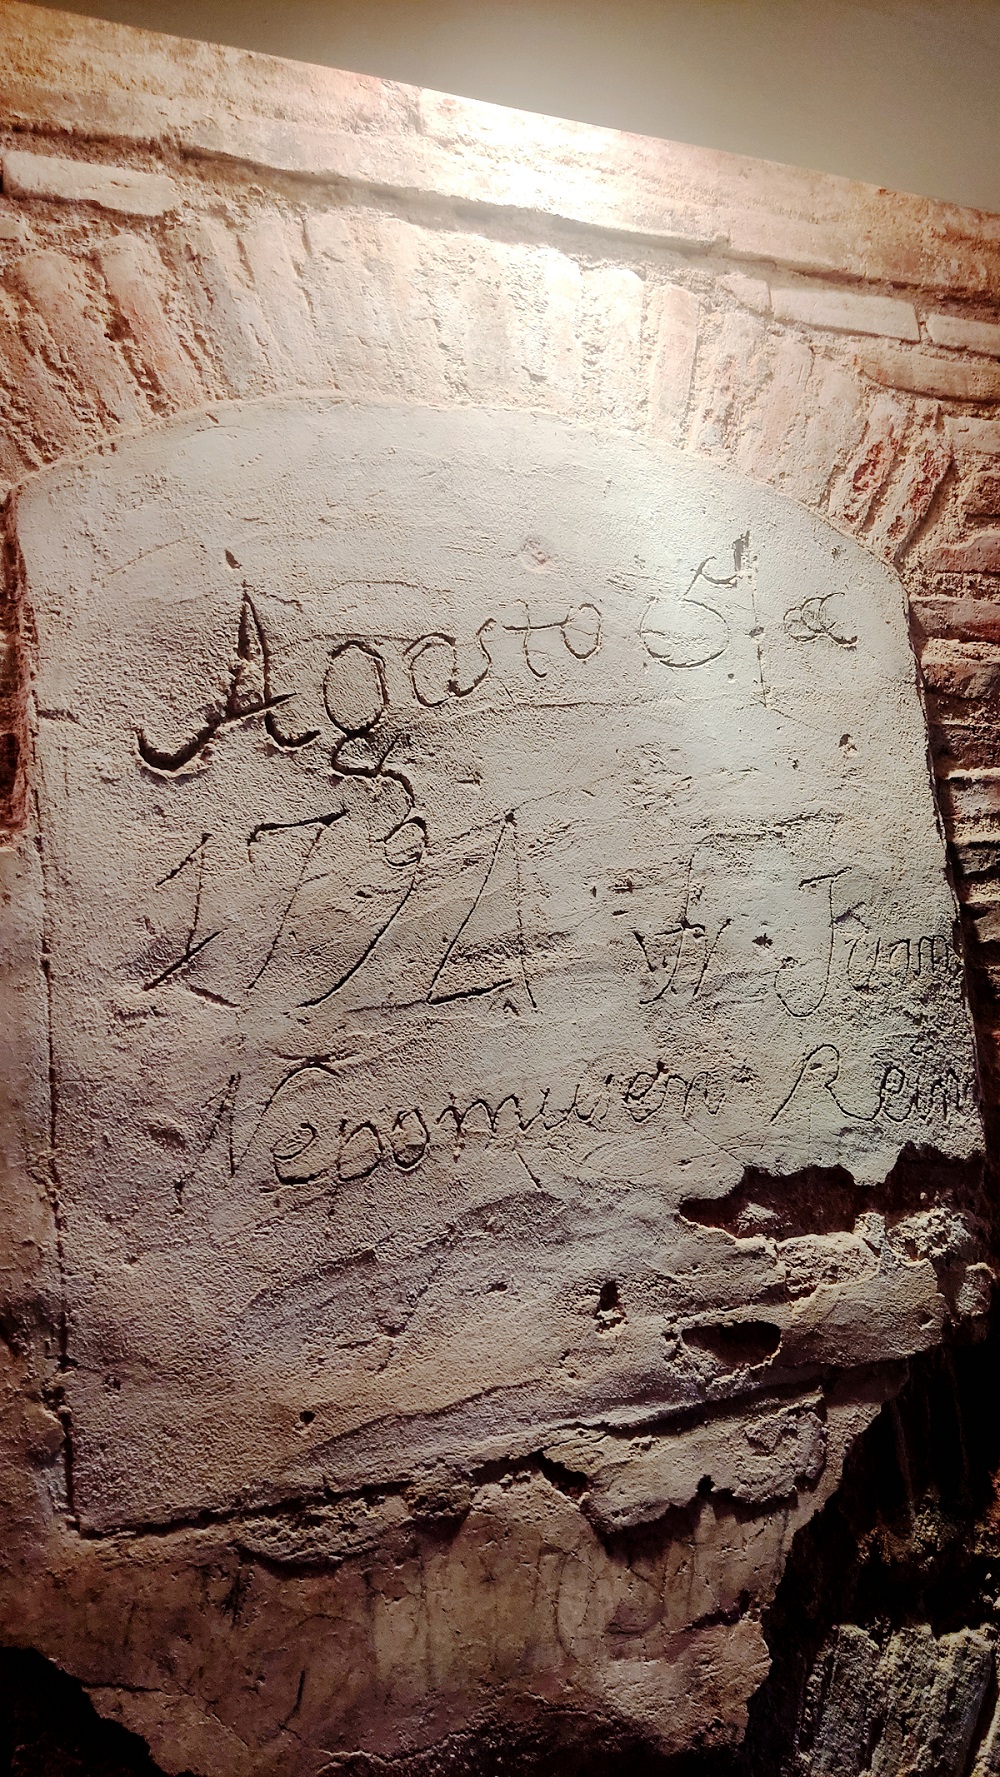 Agosto 5 de
1794 Fr Juan
Nepomuzen Rein